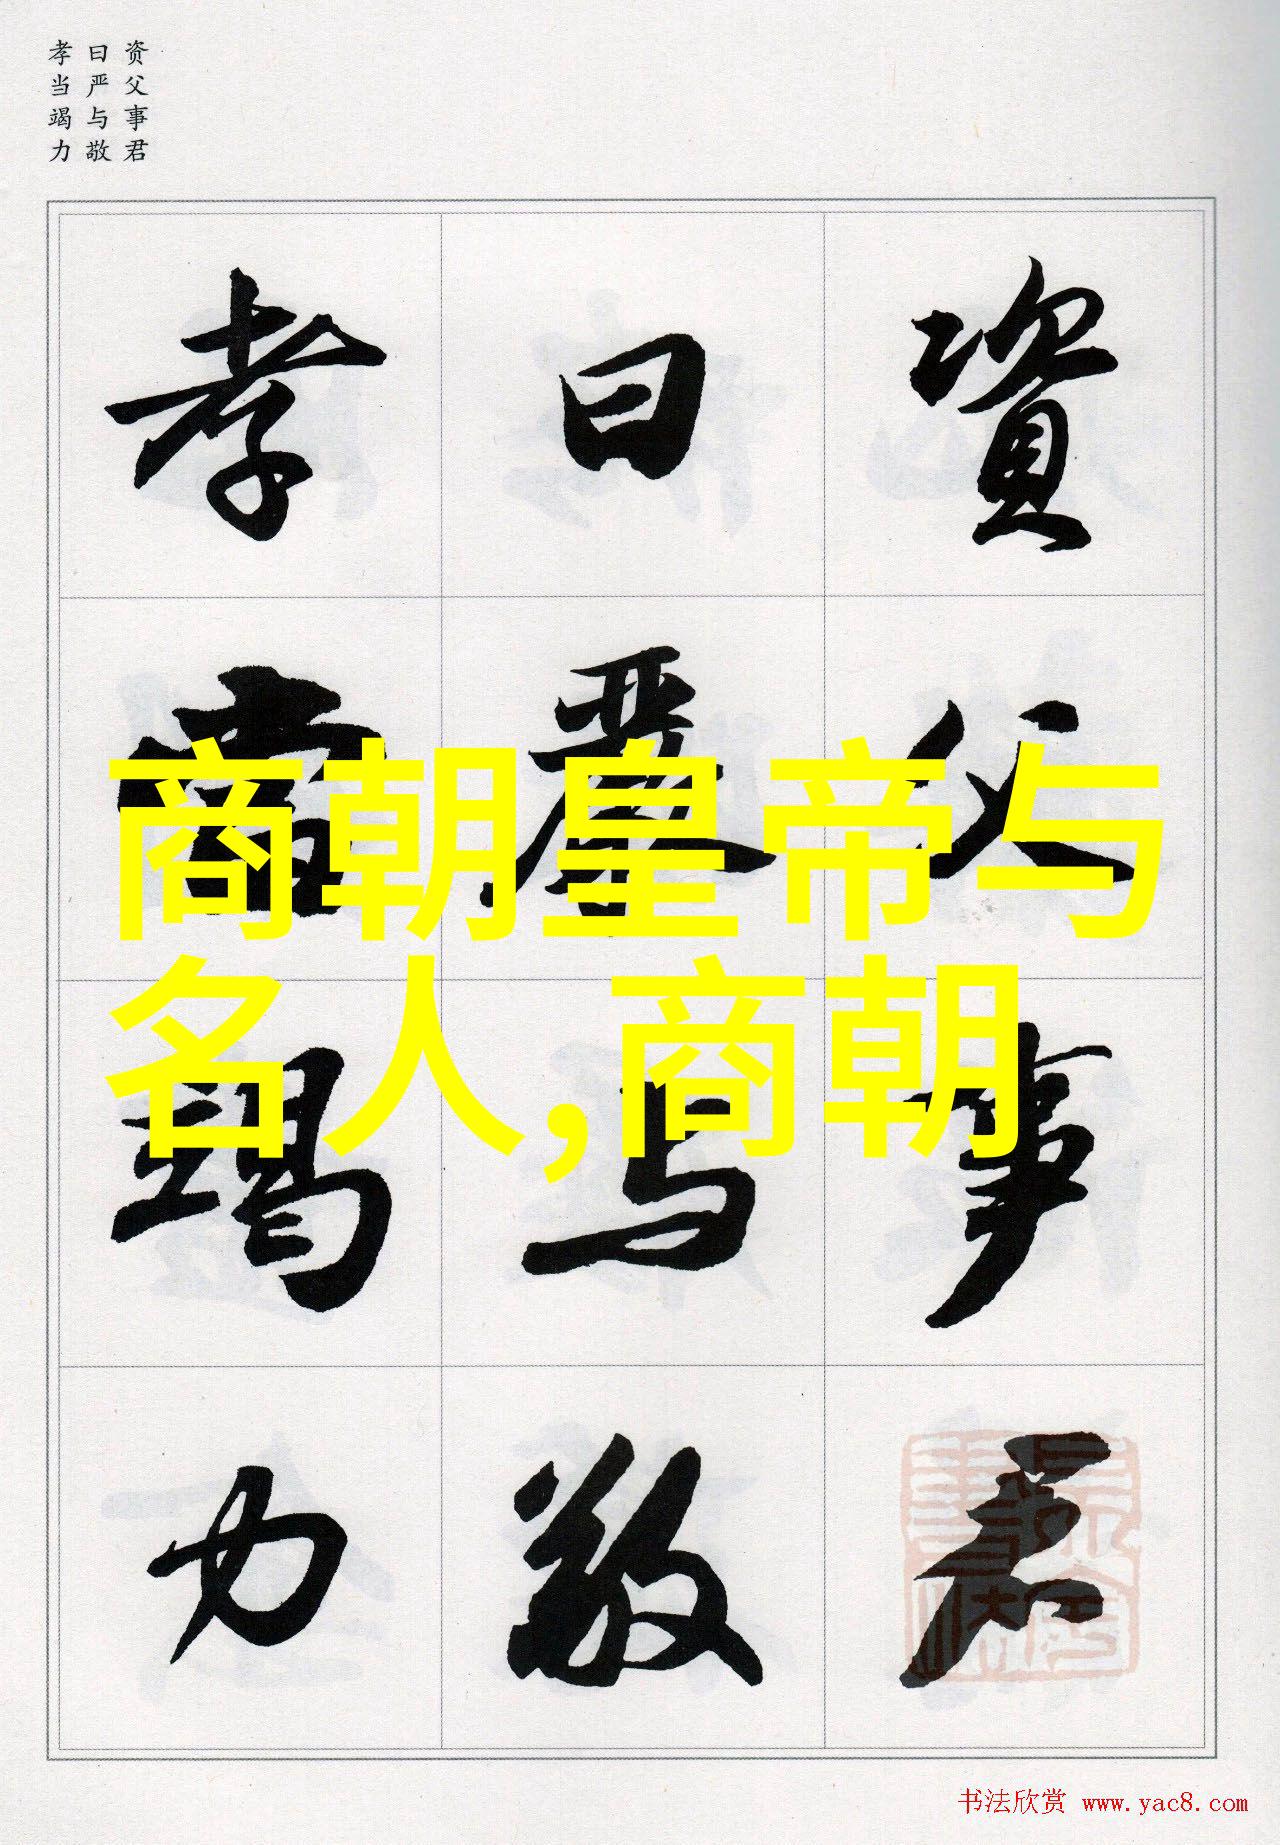 资父事君
曰严与敬
孝当竭力
資父事君
曰嚴与敬
孝當竭力
商朝皇帝与
名人,商朝
书法欣赏 www.yac8.com